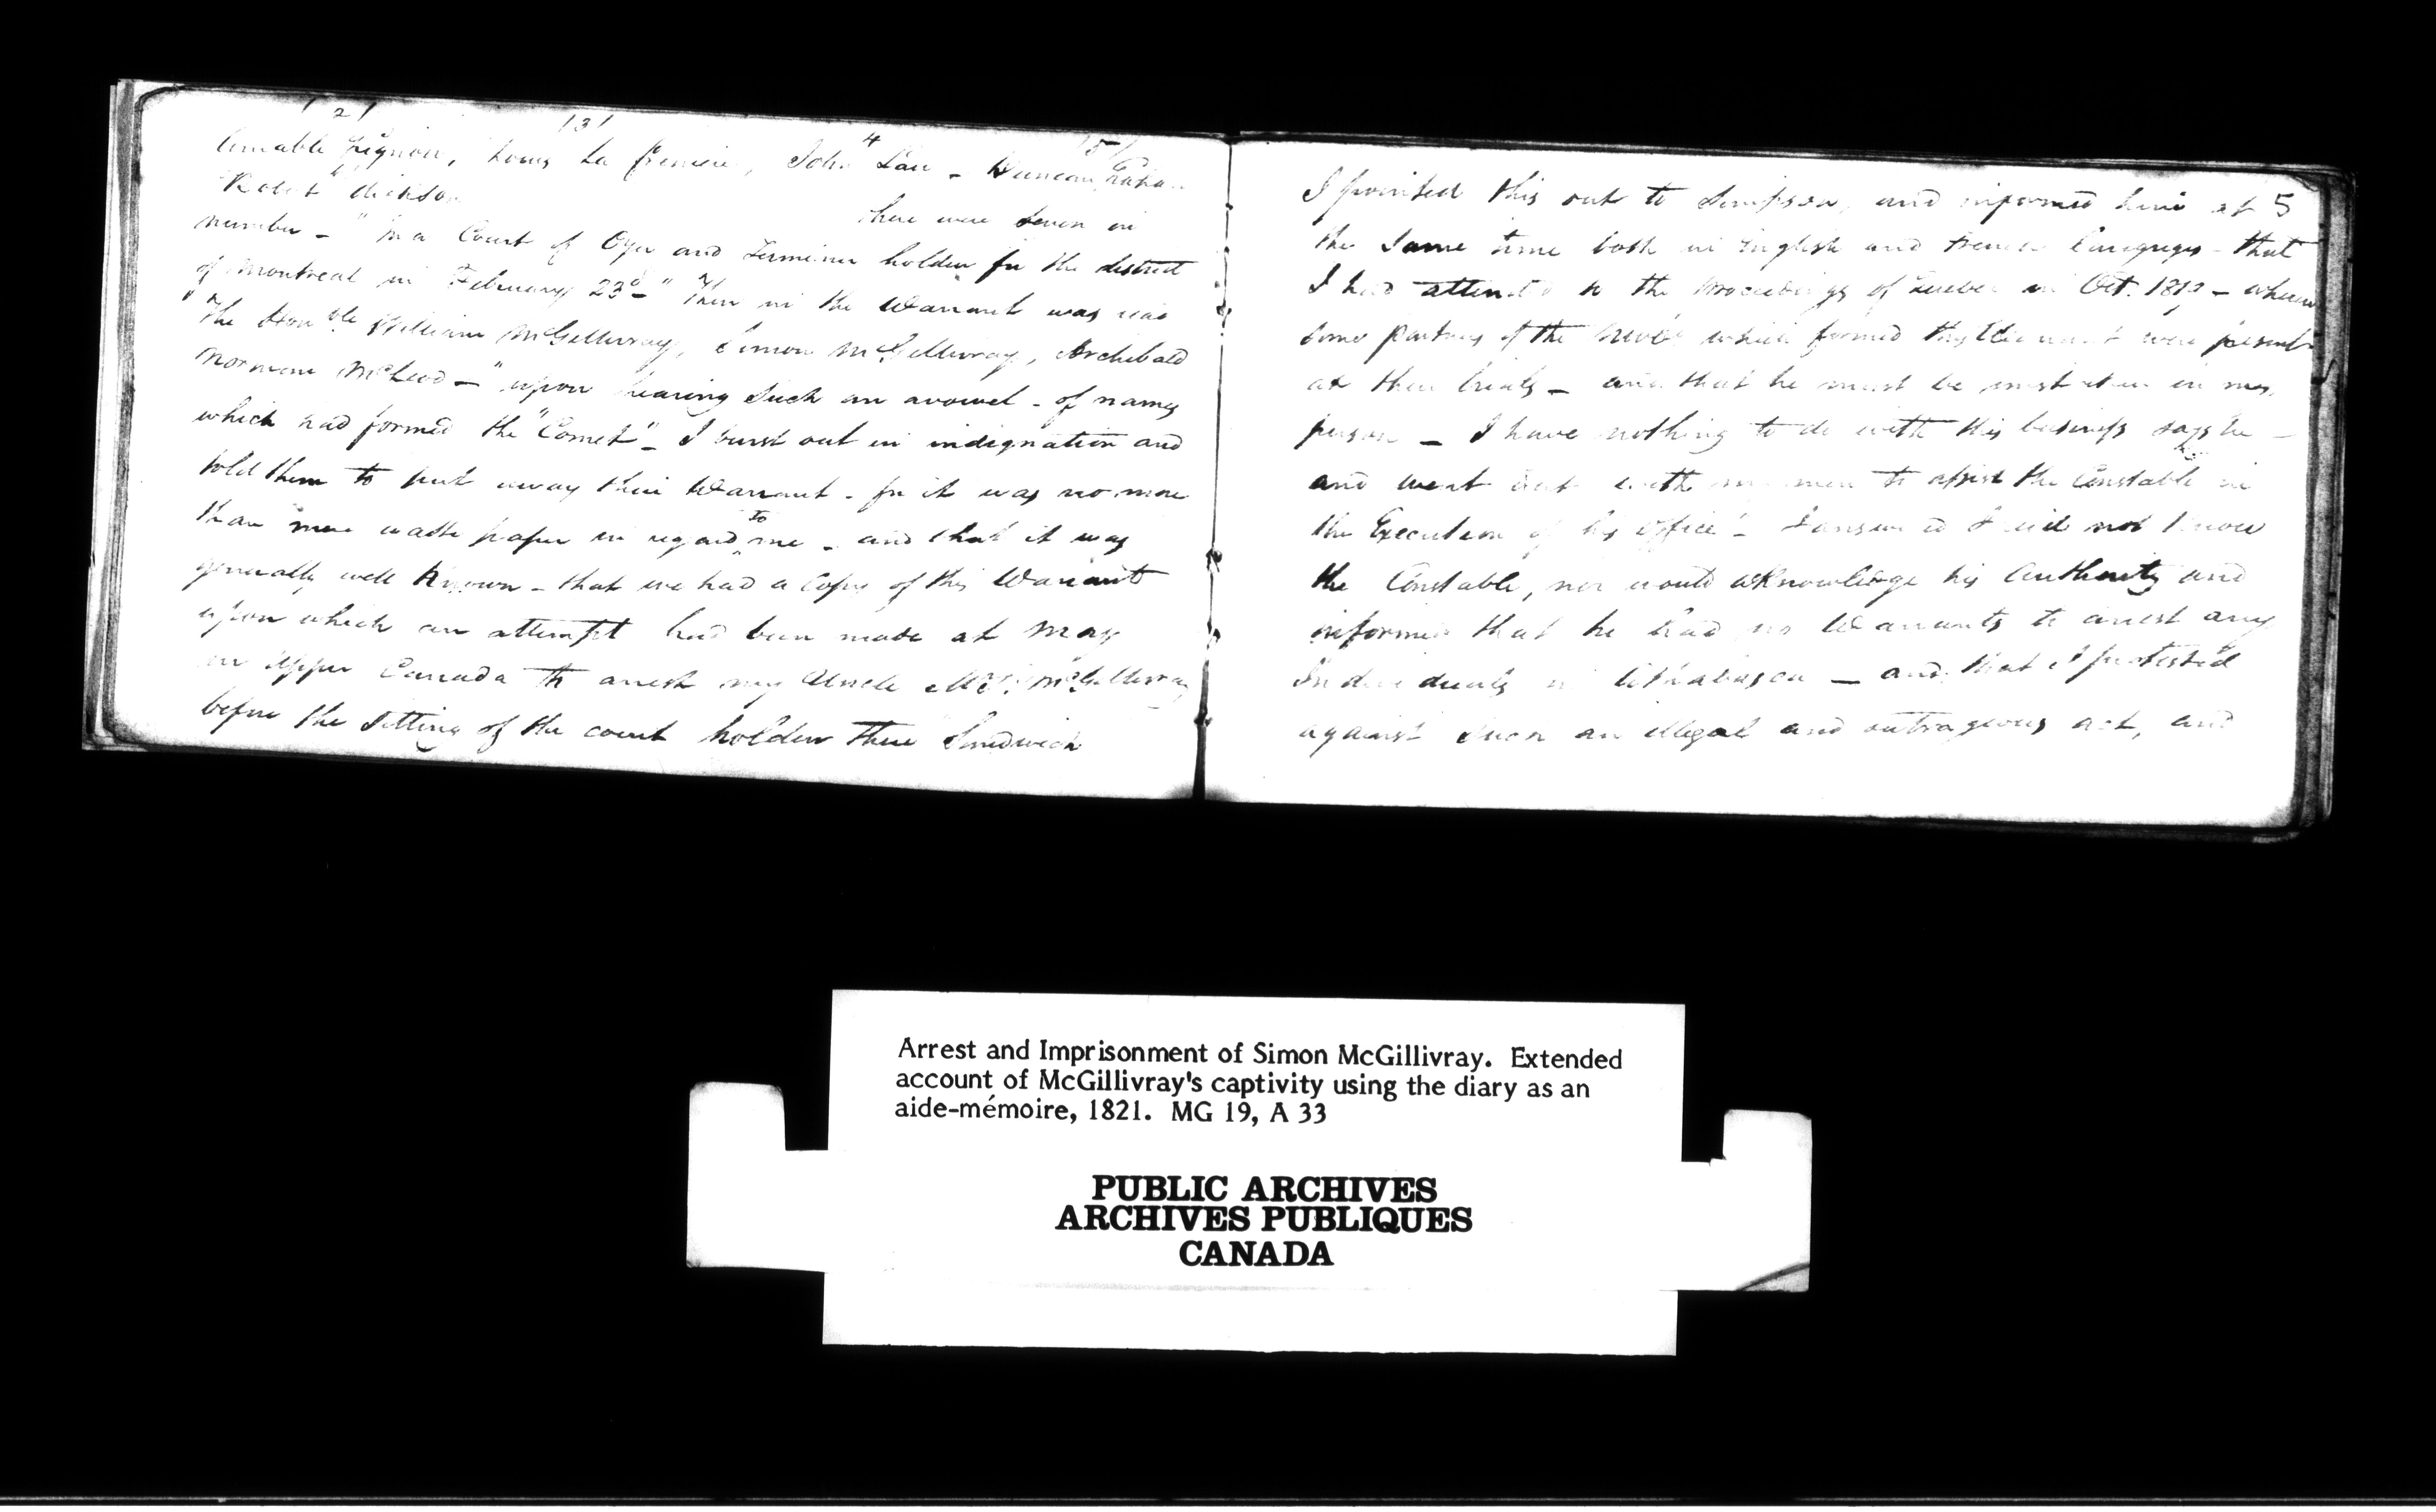 /2/ /3/ 4 /5/
Amiable Grignon, Louis La , John Law - Duncan Graham
Robert Dickson
there were seven in
number - "in a Court of Oyer and Terminer holden for the district
of Montreal in February 23d -" Then in the Warrant was read
"The Honble William McGillivray, Simon McGillivray, Archibald
Norman McLeod -" upon hearing such an avowel - of names
which had formed the "Comet" - I burst out in indignation and
told them to put away their Warrant - for it was no more
than mere waste paper in regard to me - and that it was
generally well known - that we had a Copy of this Warrant
upon which an attempt had been made at May
in Upper Canada to arrest my Uncle McGillivray
before the Sitting of the court holden there Sandwich
I pointed this out to Simpson, and informed him at 5
the same time both in English and French languages - that
I had attended to the proceedings of Quebec in Oct. 181 - where
some partners of the which formed this were present
at their trials - and that he must be mistaken in my
person - I have nothing to do with this business says he -
and went out with my men to assist the Constable in
the Execution of his office - I answered I did not know
the Constable, nor would aknowledge his Authority and
informed that he had no Warrants to arrest any
Individuals in Athabasca - and that I protested
against such an illegal and outrageous act, and
Arrest and Imprisonment of Simon McGillivray. Extended
account of McGillivray's captivity using the diary as an
aide-mémoire, 1821. MG 19, A 33
PUBLIC ARCHIVES
ARCHIVES PUBLIQUES
CANADA